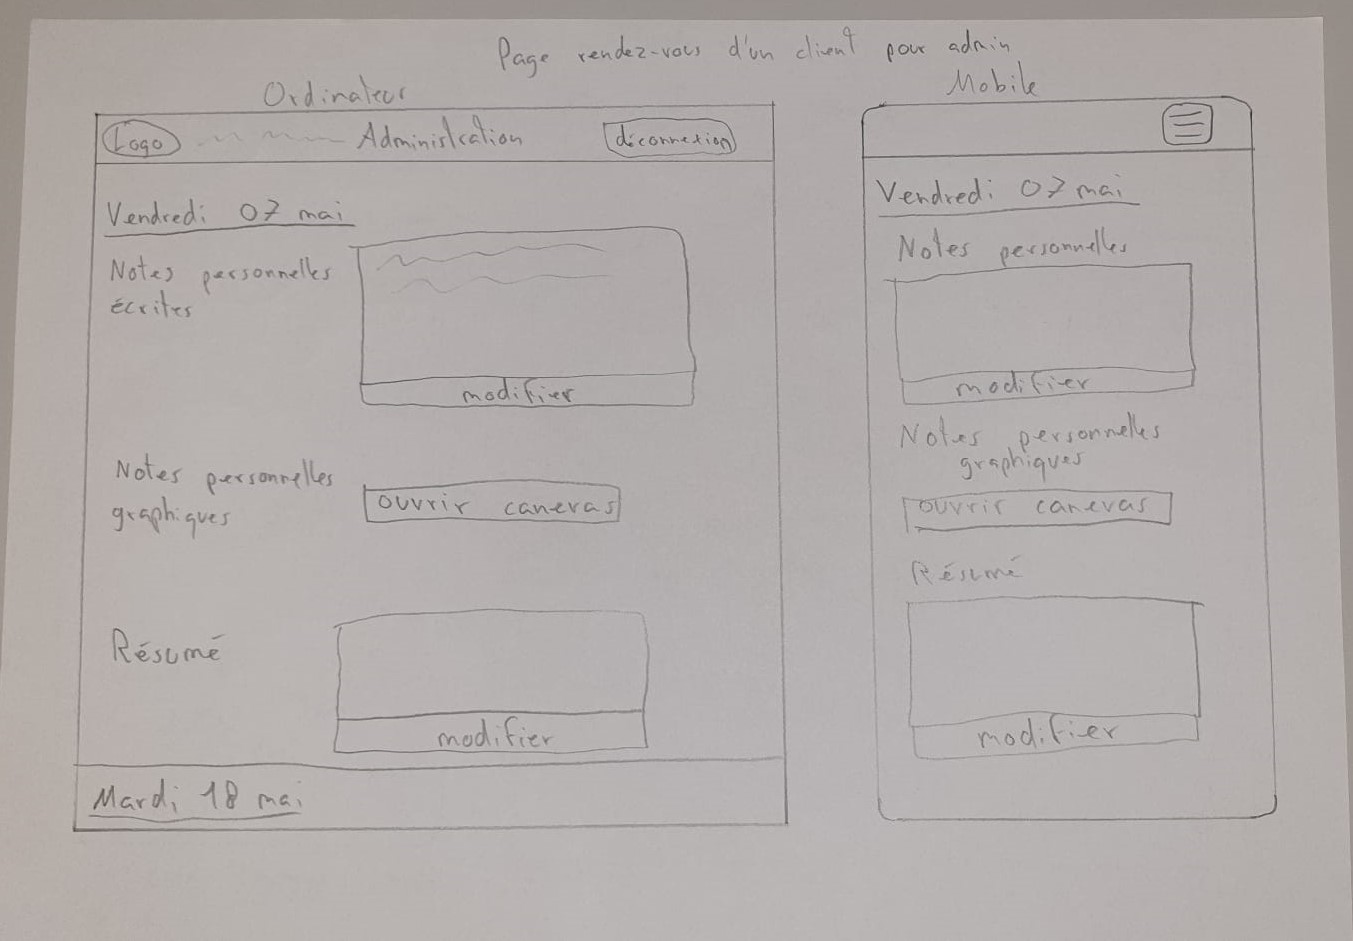 Page rendez-vous d'un client pour admin
Ordinateur
Logo Administration déconnexion
Vendredi 07 mai
Notes personnelles
écrites
modifier
Notes personnelles
graphiques
ouvrir canevas
Résumé
modifier
Mardi 18 mai
Mobile
Vendredi 07 mai
Notes personnelles
modifier
Notes personnelles
graphiques
ouvrir canevas
Résumé
modifier